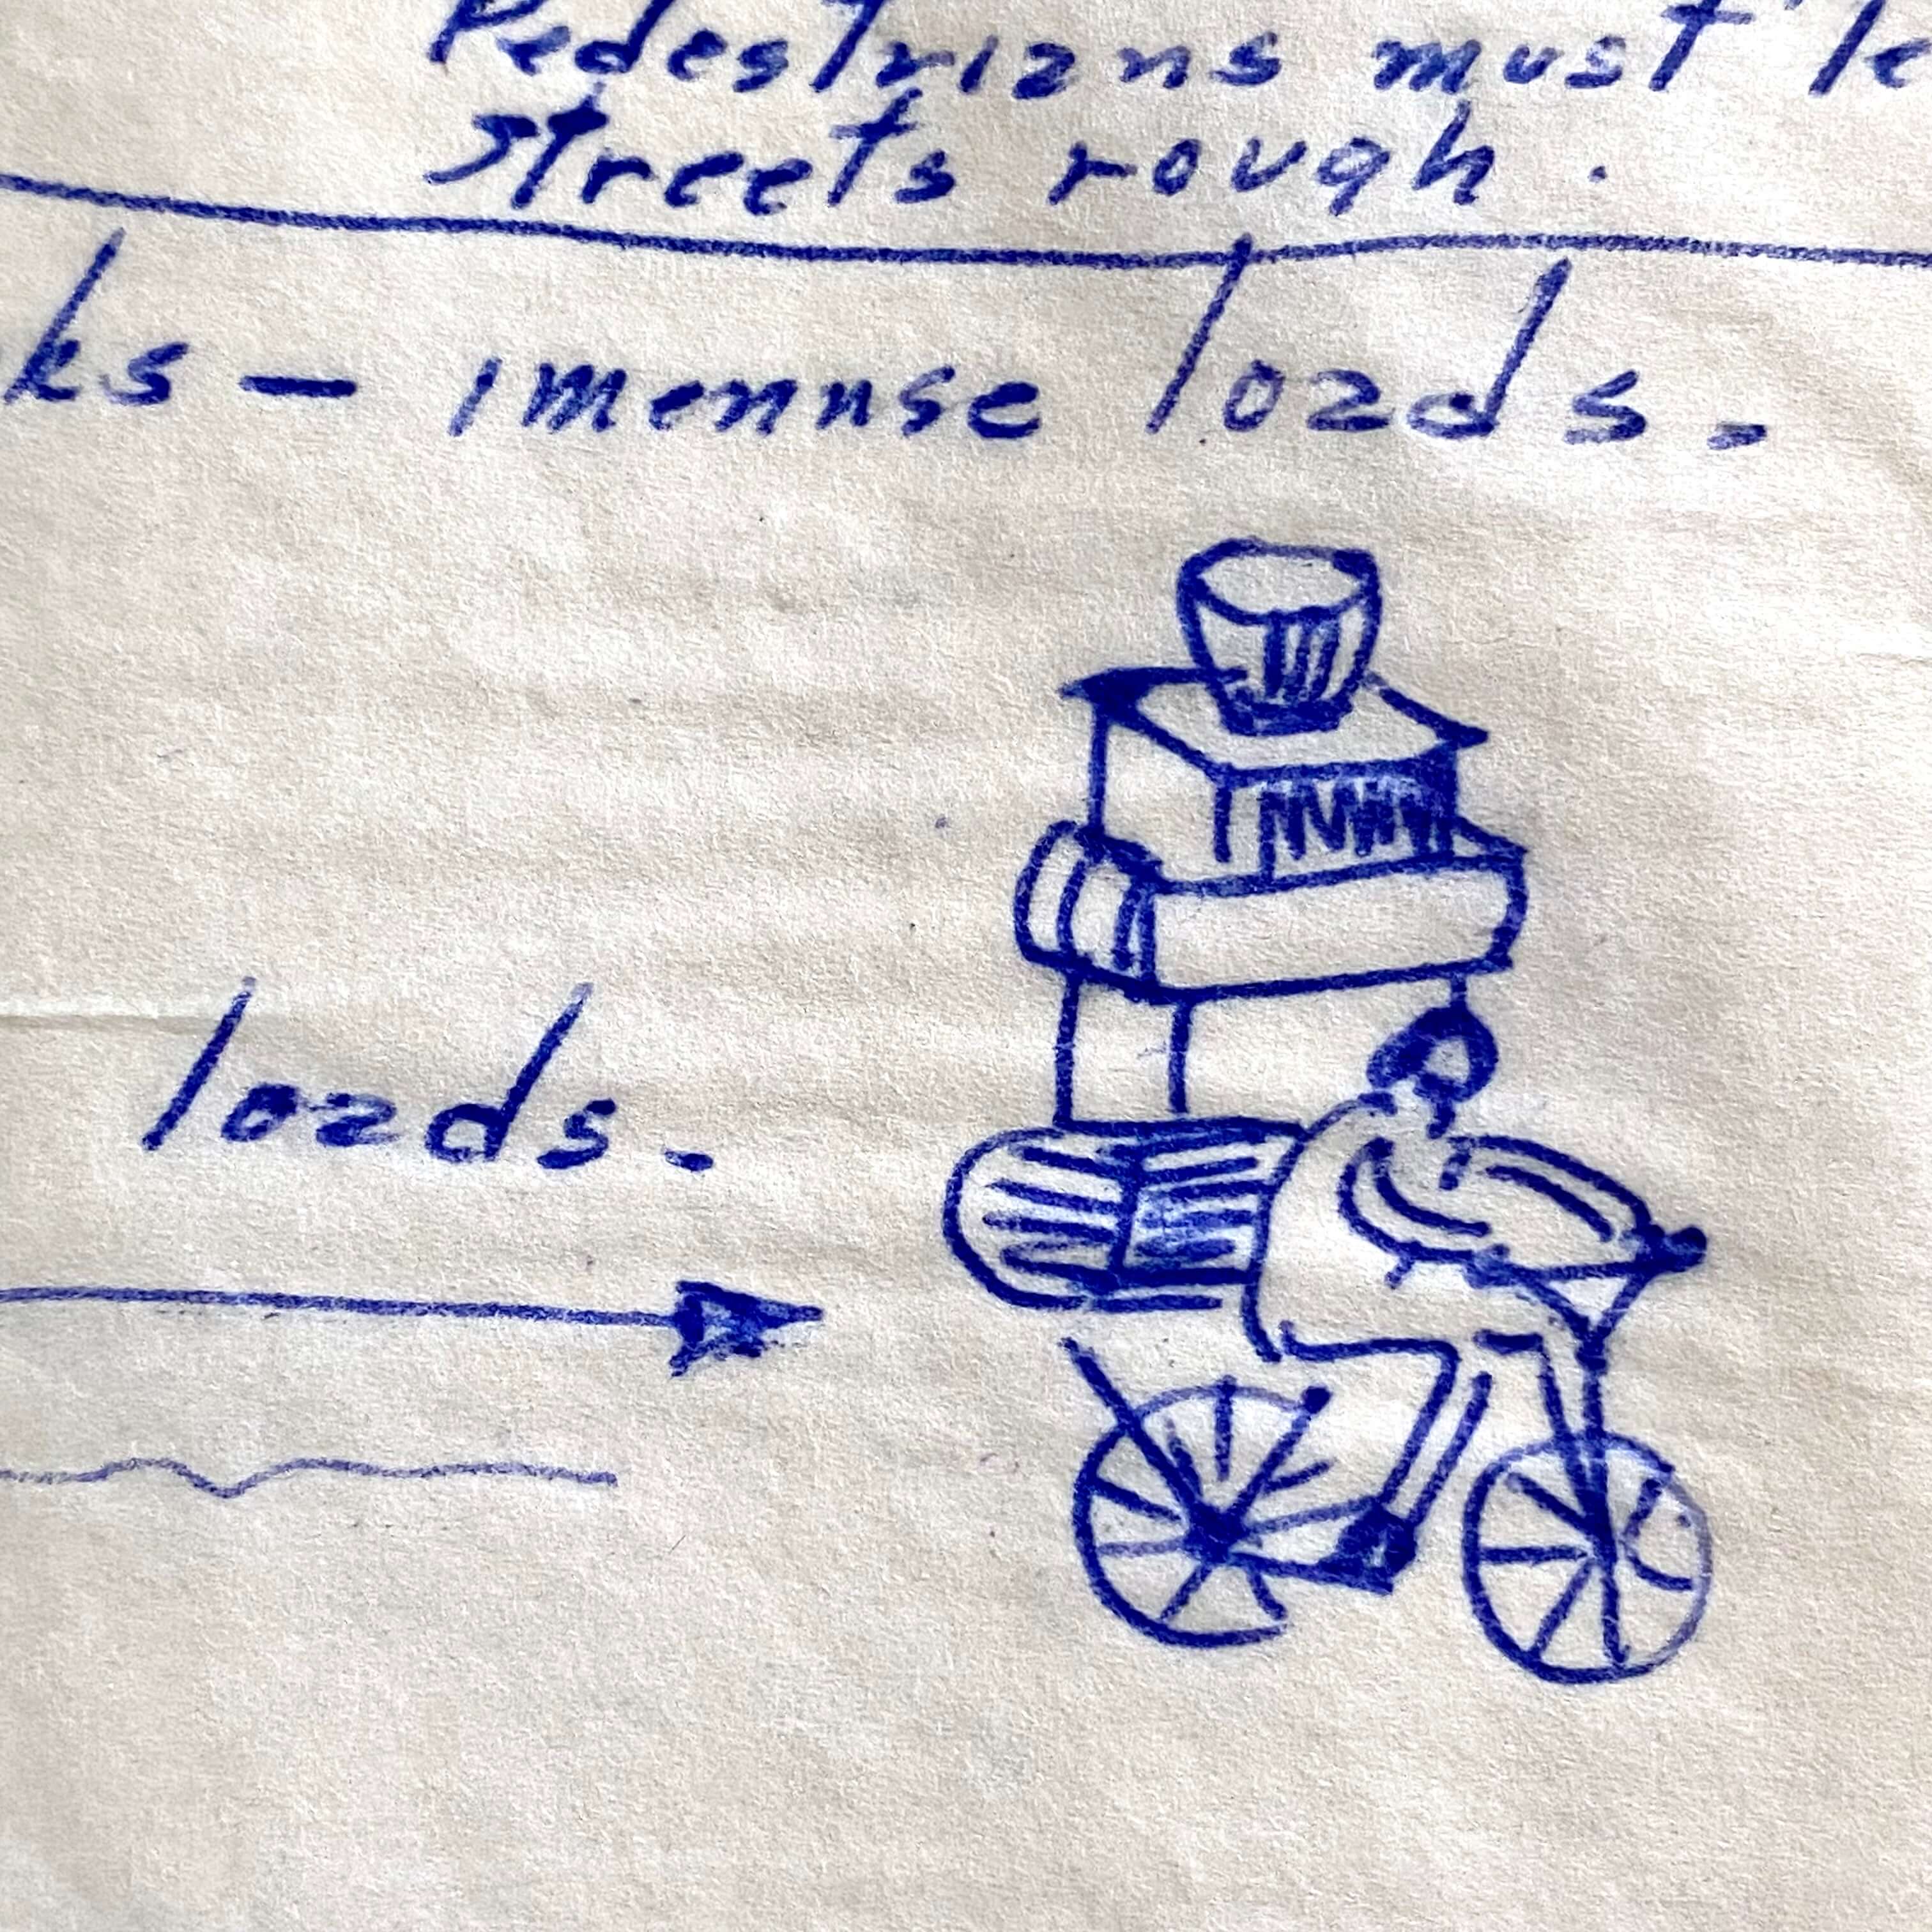 Pedestrians must le
streets rough.
ks — imennse loads.
loads.